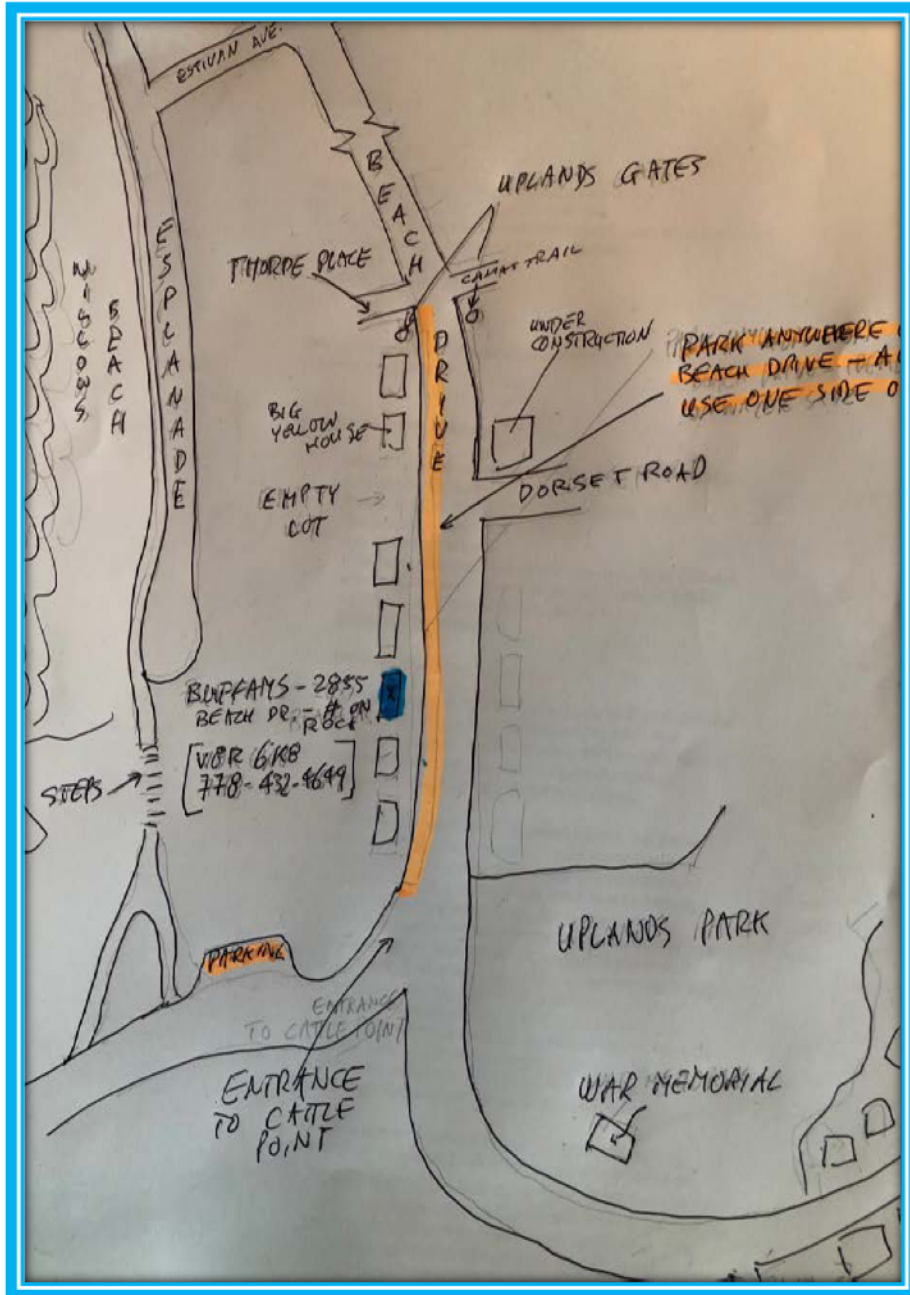 ESTIVAN AVE.
BEACH
UPLANDS GATES
ESPLANADE
THORPE PLACE
TRAIL
WILLOWS
BEACH
DRIVE
UNDER
CONSTRUCTION
PARK ANYWHERE
BEACH DRIVE - A
USE ONE SIDE O
BIG
YELLOW
HOUSE
EMPTY
LOT
DORSET ROAD
- 2855
BEACH DR. - # ON
ROCK
V8R 6K8
778-432-4649
STEPS
UPLANDS PARK
PARKING
ENTRANCE
TO CATTLE POINT
ENTRANCE
TO CATTLE
POINT
WAR MEMORIAL